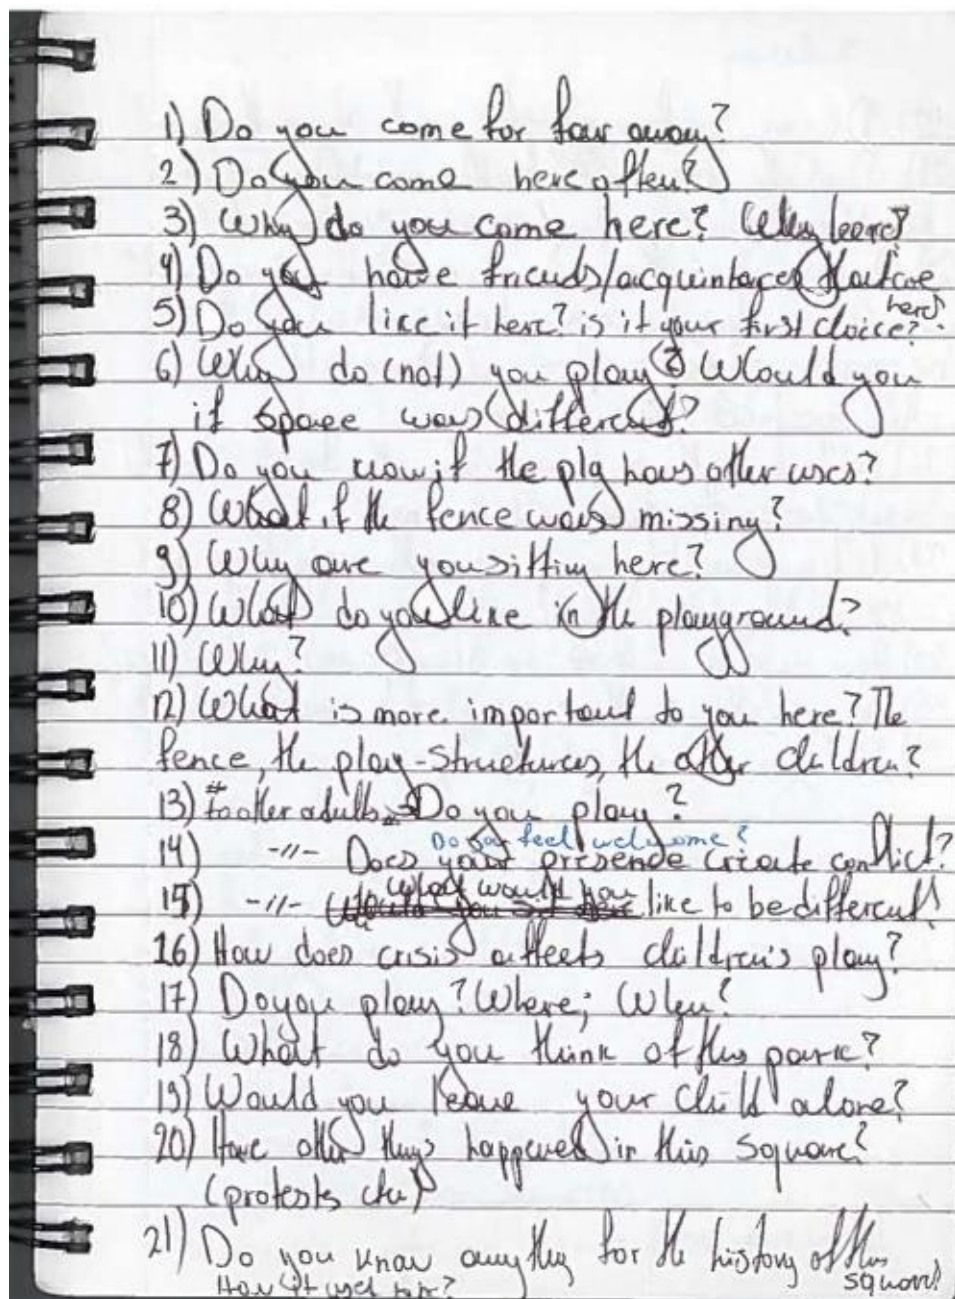 1) Do you come for far away?
2) Do you come here often?
3) Why do you come here? Why here?
4) Do you have friends/acquintances that are
here?
5) Do you like it here? is it your first choice?
6) Why do (not) you play? Would you
if space was different?
7) Do you know if the plg has other uses?
8) What if the fence was missing?
9) Why are you sitting here?
10) What do you like in the playground?
11) When?
12) What is more important to you here? The
fence, the play-structures, the other children?
13) to other adults Do you play?
Do you feel welcome?
14) -//- Does your presence create conflict?
What would you
15) -//- like to be different?
16) How does crisis affects children's play?
17) Do you play? Where; When?
18) What do you think of this park?
19) Would you leave your child alone?
20) Have other things happened in this square?
(protests etc)
21) Do you know anything for the history of this
square?
How it used to be?